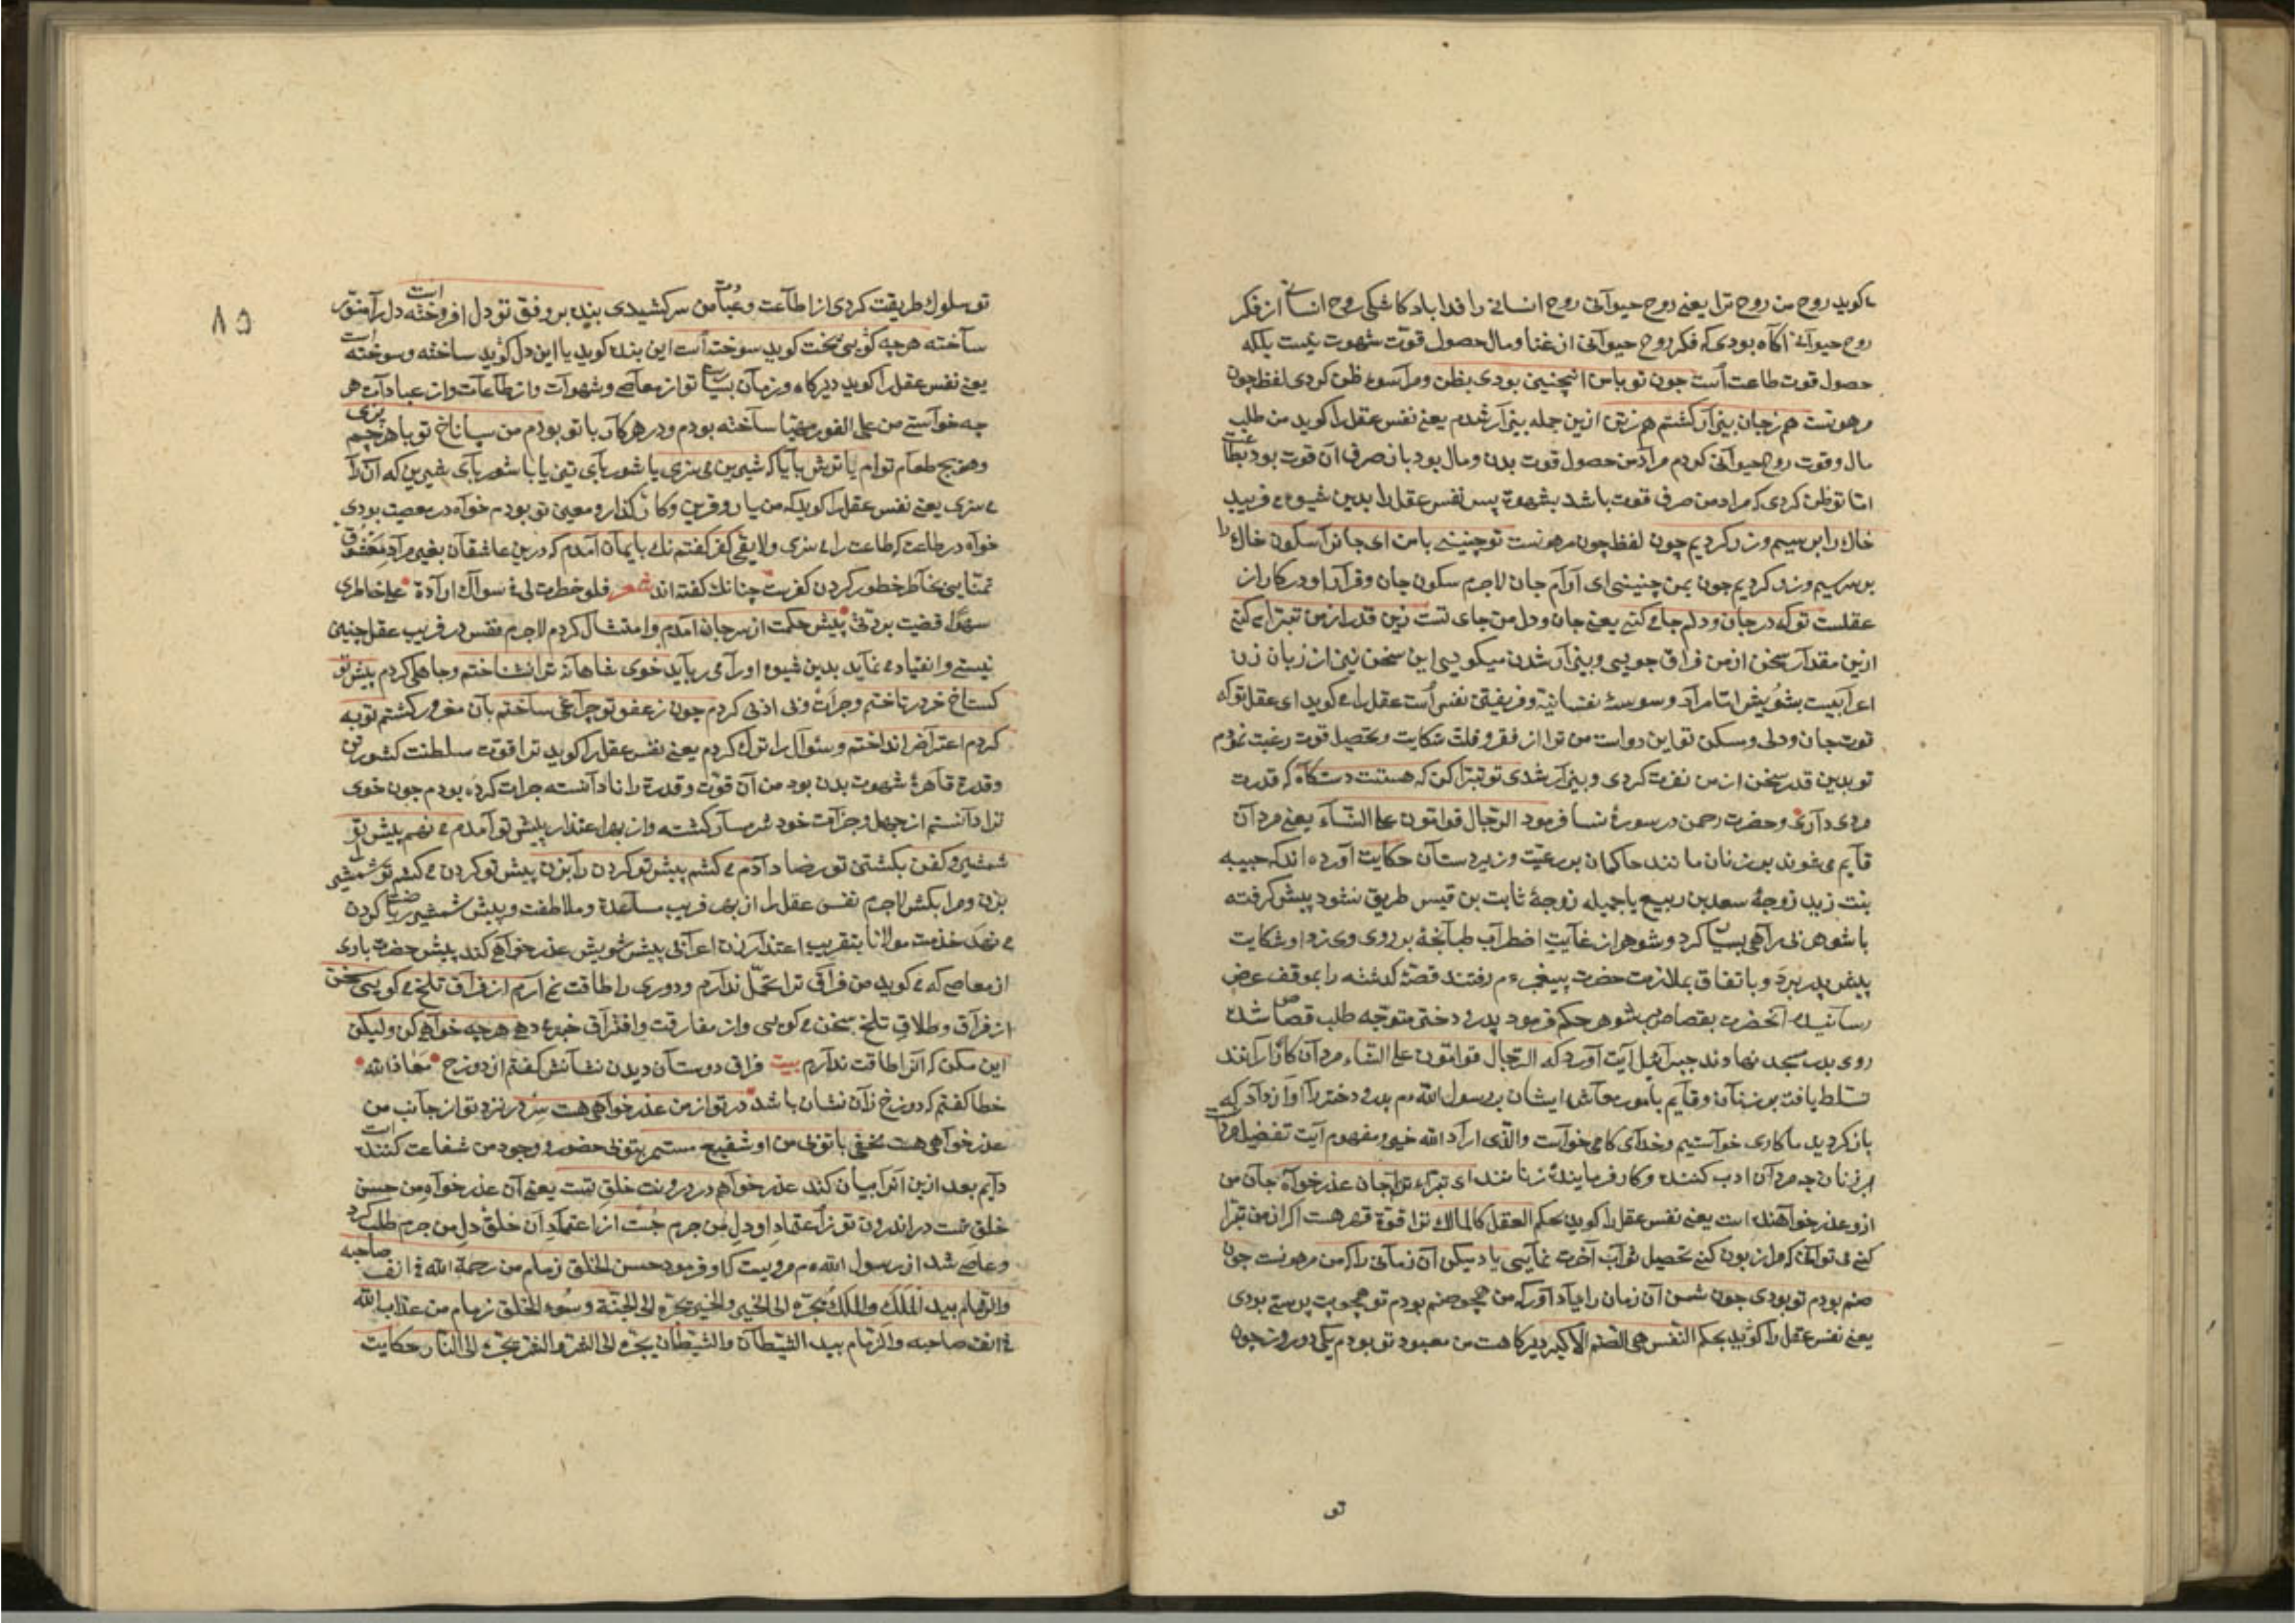 میکوید روح من روح ترا یعنی روح حیوآنی روح انسانی را فدا باد کاشکی روح انسانی از فکر
روح حیوآنی آکاه بودی که فکر روح حیوآنی از غنا و مال حصول قوت شهوت نیست بلکه
حصول قوت طاعت است جون تو با من اینچنین بودی بظن و مرا سوء ظن کردی لفظ چون
مرهونست هم زجان بیزآر کشتم هم زتن ازین جمله بیزآر شدم یعنی نفس عقل را کوید من طلب
مال و قوت روح حیوآنی کردم مرآد من حصول قوت بدن و مال بود بآن صرف آن قوت بود بطاعت
امّا تو ظن کردی که مراد من صرف قوت باشد بشهوة پس نفس عقل را بدین شیوه می فریبد
خاك را بر سیم و زر کردیم چون لفظ چون مرهونست تو چنینی با من ای جانرآ سکون خاك را
بر سر سیم و زر کردیم چون بمن چنینی ای آرام جان لاجرم سکون جان و قرآر او در کار از
عقلست تو که در جان و دلم جا می کنی یعنی جان و دل من جای تست زین قدر از من تبرّا می کنی
ازین مقدآر سخن از من فراق جویی و بیزآر شدن میکویی این سخن نیز از زبان زن
اعرآبیست بشویش امّا مرآد وسوسهٔ نفسانیّه و فریفتن نفس است عقل را می کوید ای عقل تو که
قوت جان و دلی و مسکن تو این دو است من ترا از فقر و قلّت شکایت و تحصیل قوت رغبت نمودم
تو بدین قدر سخن از من نفرت کردی و بیزآر شدی تو تبرّا کن که هستت دستکاه که قدرت
مردی دآری و حضرت رحمن در سورهٔ نسا فرمود الرّجال قوامون علی النّسآء یعنی مردآن
قآیم می شوند بر زنان مانند حاکمان بر رعیّت و زیردستآن حکایت آورده اند که حبیبه
بنت زید زوجهٔ سعد بن ربیع یا جمیله زوجهٔ ثابت بن قیس طریق نشوز پیش کرفته
با شوهر بی رآهی بسیار کرد و شوهر از غآیت اضطرآب طبآنچهٔ بر روی وی زد او شکایت
پیش پدر برد و با تفاق بملازمت حضرت پیغمبر عم رفتند قصّهٔ کذشته را بموقف عرض
رسآنیدند آنحضرت بقصاص شوهر حکم فرمود پدر و دختر متوجّه طلب قصاص شده
روی بدر مسجد نهادند جبرآئیل آیت آورد که الرّجال قوامون علی النّسآء مردآن کارکذارانند
تسلط یافته بر زنآن و قآیم بامور معآش ایشان پس رسول الله عم پدر و دختر را آواز داد که
باز کردید ما کاری خوآستیم و خدآی کآری خوآست والّذی ارآد الله خیر و مفهوم آیت تفضیل مردآن
بر زنان چه مردآن ادب کننده و کار فرمایندهٔ زنانند ای تبرّاء ترا جان عذر خوآه جآن من
ازو عذر خوآهنده است یعنی نفس عقل را کوید بحکم العقل کالمالك ترا قوّة قهر هست اکر از من تبرّا
کنی می توآنی که مرا زبون کنی تحصیل ثوآب آخرت نمآیی یاد میکن آن زمآنی را که من مرهونست چون
صنم بودم تو بودی جون شمن آن زمان را یاد آور که من همچو صنم بودم تو همچو بت پرستی بودی
یعنی نفس عقل را کوید بحکم النّفس هی الصّنم الاکبر دیرکاهست من معبود تو بودم یکی دو روز جون
تو
۸۵
تو سلوك طریقت کردی از اطآعت و عبادت من سر کشیدی بنده بر وفق تو دل افروخته است دل رآ منوّر
سآخته هرجه کویی پخت کوید سوخت است این بنده کوید یا این دل کوید ساخته و سوخته است
یعنی نفس عقل را کوید دیرکاه و زمآن بسیار تو از معآصی و شهوآت و از طآعآت و از عبادآت هر
چه خوآستی من علی الفور مهیّا سآخته بودم و در هر کآر با تو بودم من سپاناخ تو با هرچم پزی
و هر هیچ طعام توام یا ترش با یا که شیرین می پزی یا شوربآی ترش یا با شوربآی شیرین که آن را
می پزی یعنی نفس عقل را کوید که من یار و قرین و کار کذار و معین تو بودم خواه در معصیت بودی
خواه در طاعت که طاعت را می پزی و لایقی کفر کفتم نك بایمآن آمدم که در دین عاشقآن بغیر مرآد معشوق
تمنّایی بخآطر خطور کردن کفرست چنانك کفته اند شعر فلو خطرت لی فی سوآك ارآدة علی خاطری
سهوا قضیت بردّتی پیش حکمت از سر جان آمدم و امتثال کردم لاجرم نفس در فریب عقل چنین
نیستی و انقیاد می نمآید بدین شیوه او رآ می رباید خوی شاهآنه ترا نشناختم و جاهلی کردم پیش تو
کستاخ خر در تاختم و جرات و بی ادبی کردم جون ز عفو تو چرآغی سآختم بآن مغرور کشتم توبه
کردم اعترآض انداختم و سئوآل را ترك کردم یعنی نفس عقل را کوید ترا قوّت سلطنت کشور تن
و قدرة قاهرهٔ شهوت بدن بود من آن قوّت و قدرة را نادآنسته جرات کرده بودم جون خوی
ترا دآنستم از جهل و جرآت خود شرمسآر کشته و از بهر اعتذار پیش تو آمدم می نهم پیش تو
شمشیر و کفن بکشتن تو رضا دآدم می کشم پیش تو کردن را بزن پیش تو کردن می کشم تو شمشیر را
بزن و مرا بکش لاجرم نفس عقل را از بهر فریب مسآعدة و ملاطفت و پیش شمشیر ریاضت کردن
می نهد خدمت مولانا بتقریب اعتذآر زن اعرآبی پیش شویش عذر خوآهی کند پیش حضرت باری
از معاصی که می کوید من فرآق ترا تحمّل ندآرم و دوری را طاقت نمی آرم از فرآق تلخ می کویی سخن
از فرآق و طلاق تلخ سخن می کویی و از مفارقت و افترآق خبر می دهی هرچه خوآهی کن ولیکن
این مکن که آنرا طاقت ندآرم بیت فراق دوستآن دیدن نشآنش کفتم از دوزخ معاذ الله
خطا کفتم که دوزخ زآن نشان باشد در تو از من عذر خواهی هست سر در نزد تو از جآنب من
عذر خوآهی هست مخفی با تو بی من او شفیع مستمر با تو بی حضور و وجود من شفاعت کننده است
دآیم بعد ازین آنرا بیآن کند عذر خوآهم در درونت خلق تست یعنی آن عذر خوآه من حسن
خلق تست در اندرون تو ز اعتماد او دل من جرم جست از اعتمآد آن خلق دل من جرم طلب کرد
و عاصی شد از رسول الله عم مرویست که او فرمود حسن الخلق زمام من رحمة الله فی انف صاحبه
والزّمام بید الملك والملك یجرّه الی الخیر والخیر یجرّه الی الجنّة وسوء الخلق زمام من عذاب الله
فی انف صاحبه والزّمام بید الشّیطآن والشّیطآن یجرّه الی الشر والشر یجرّه الی النّار حکایت